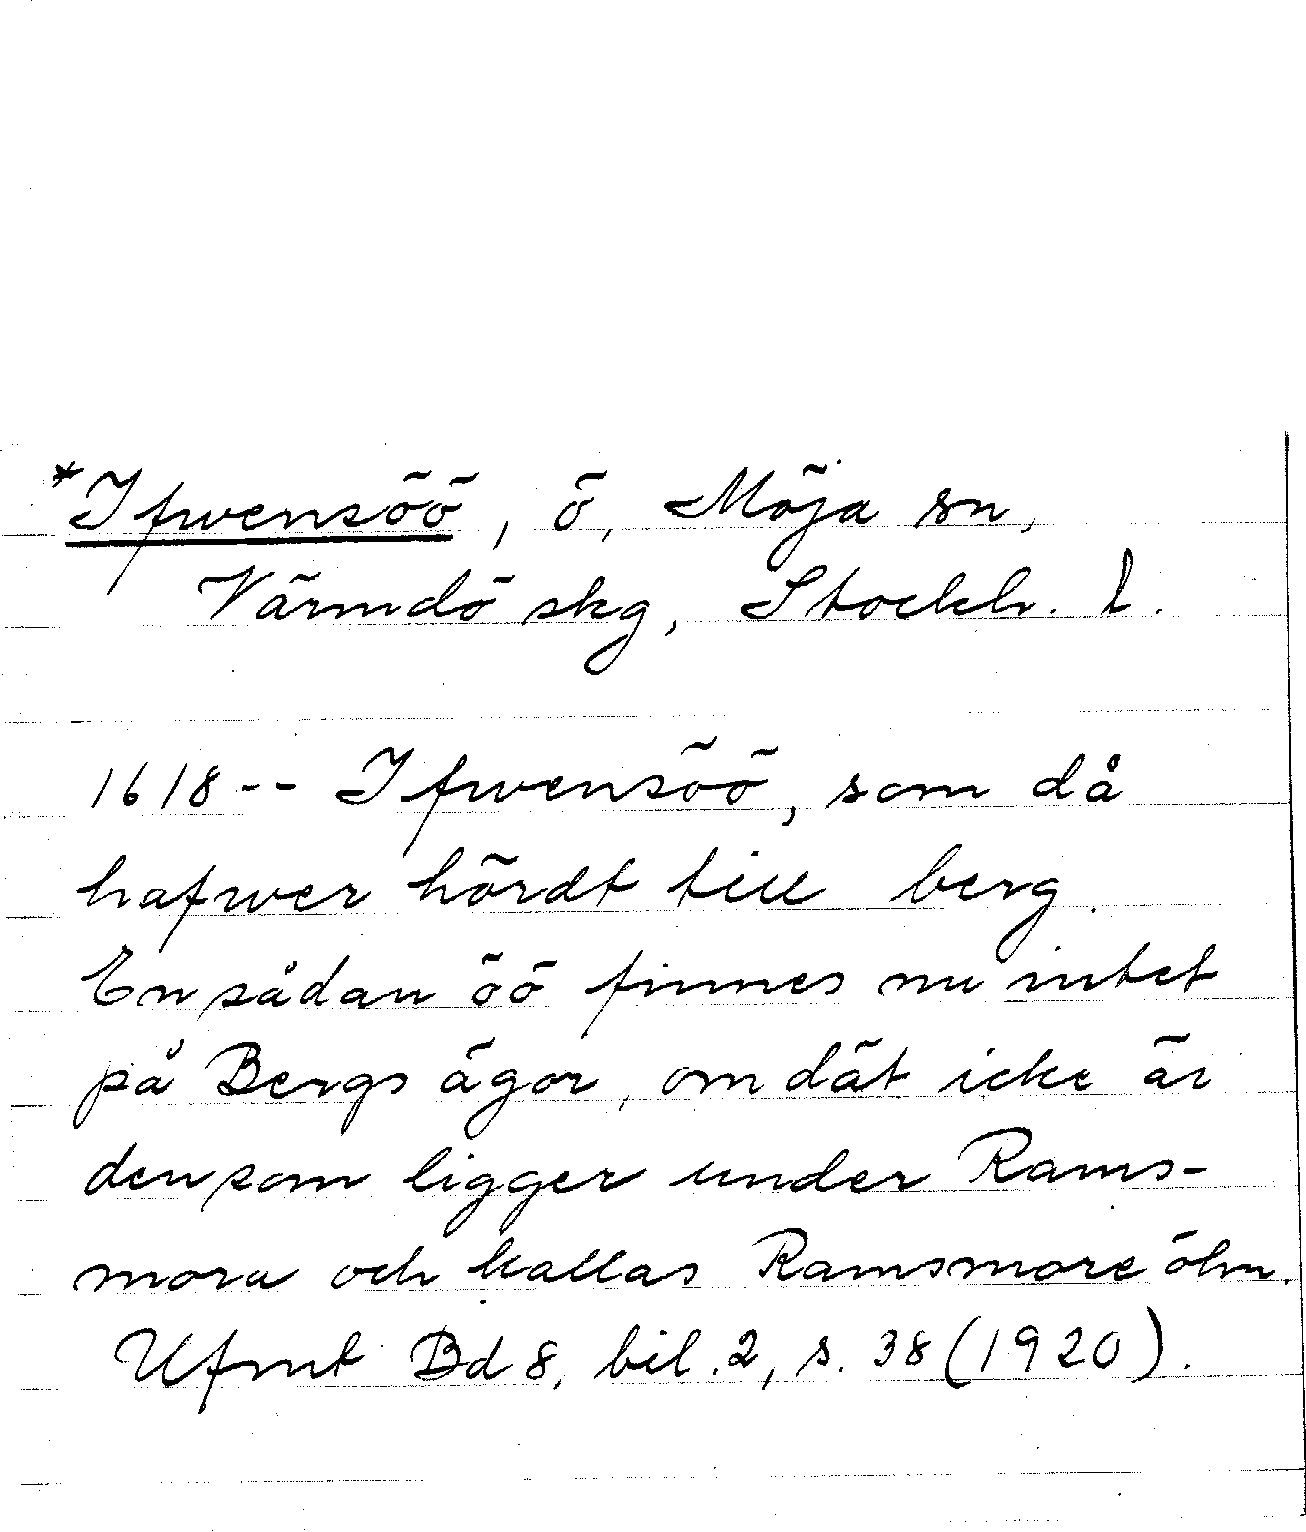 *Ifwensöö, ö, Möja sn,
Värmdö skg, Stockh. l.
1618-- Ifwensöö, som då
hafwer hördt till berg.
En sådan öö finnes nu intet
på Bergs ägor, om dät icke är
den som ligger under Rams-
mora och kallas Ramsmore ölm.
Ufmt Bd 8, bil. 2, s. 38 (1920).